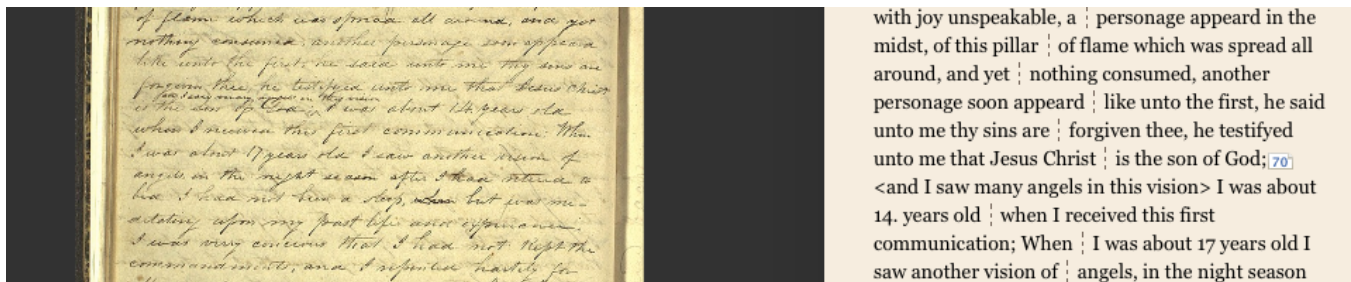 of flame which was spread all around, and yet
nothing consumed, another personage soon appeard
like unto the first, he said unto me thy sins are
forgiven thee, he testifyed unto me that Jesus Christ
and I saw many angels in this vision
is the son of God; I was about 14. years old
when I received this first communication; When
I was about 17 years old I saw another vision of
angels, in the night season after I had retired to
bed I had not been a sleep, but was me-
ditating upon my past life and experience.
I was very concious that I had not kept the
commandments, and I repented hartily for
with joy unspeakable, a ¦ personage appeard in the
midst, of this pillar ¦ of flame which was spread all
around, and yet ¦ nothing consumed, another
personage soon appeard ¦ like unto the first, he said
unto me thy sins are ¦ forgiven thee, he testifyed
unto me that Jesus Christ ¦ is the son of God; 70
<and I saw many angels in this vision> I was about
14. years old ¦ when I received this first
communication; When ¦ I was about 17 years old I
saw another vision of ¦ angels, in the night season